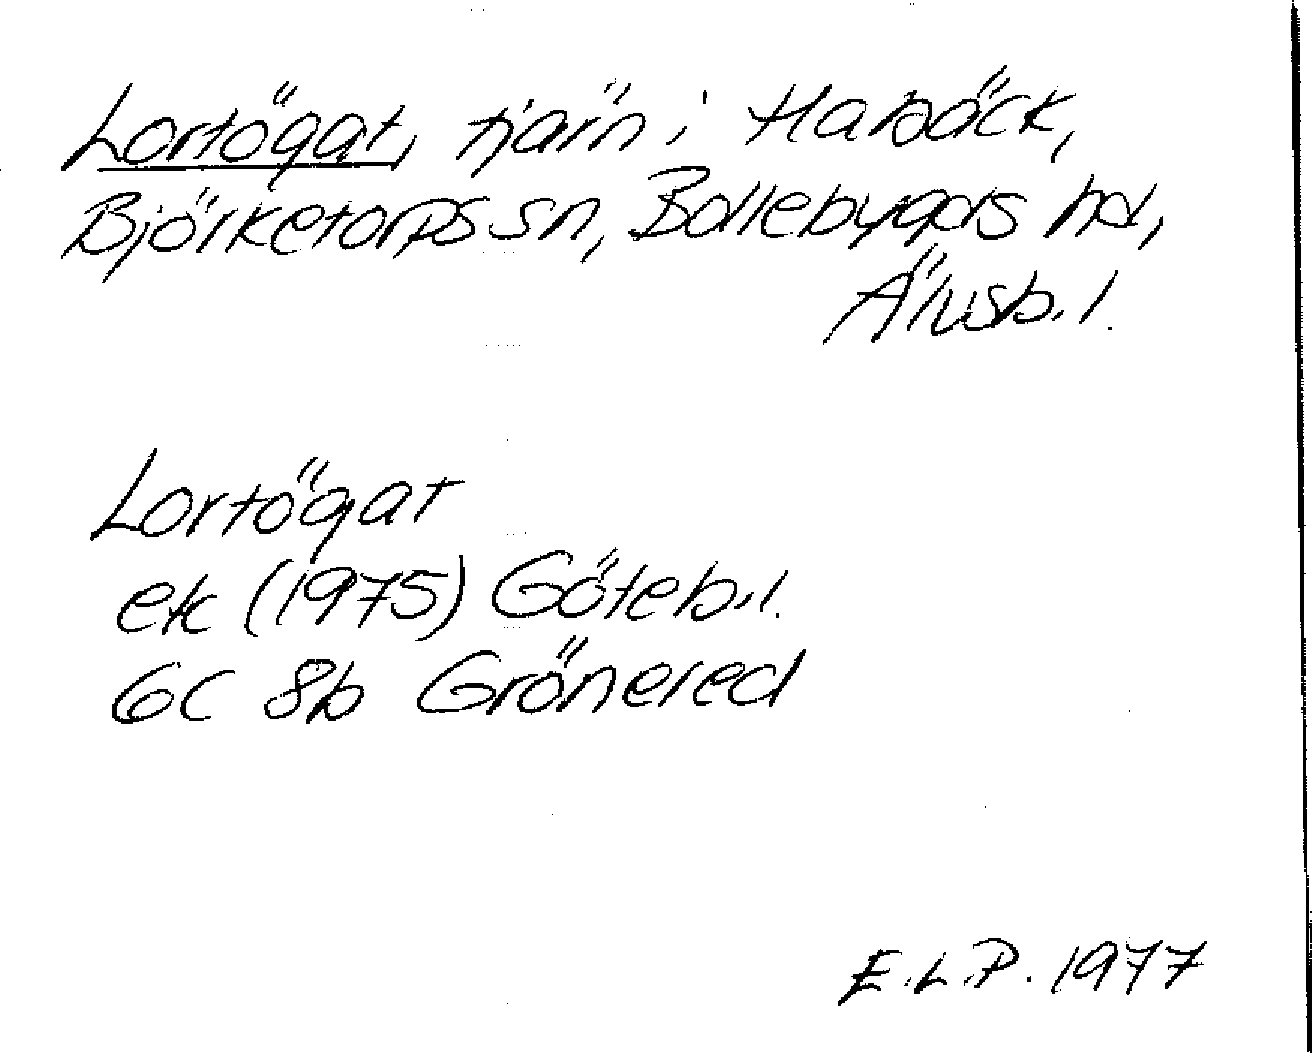 Lortögat, tjärn i Habäck,
Björketorps sn, Bollebygds hd,
Älvsb. l.
Lortögat
ek (1975) Göteb. l.
6C 8b Grönered
E. L. P. 1977